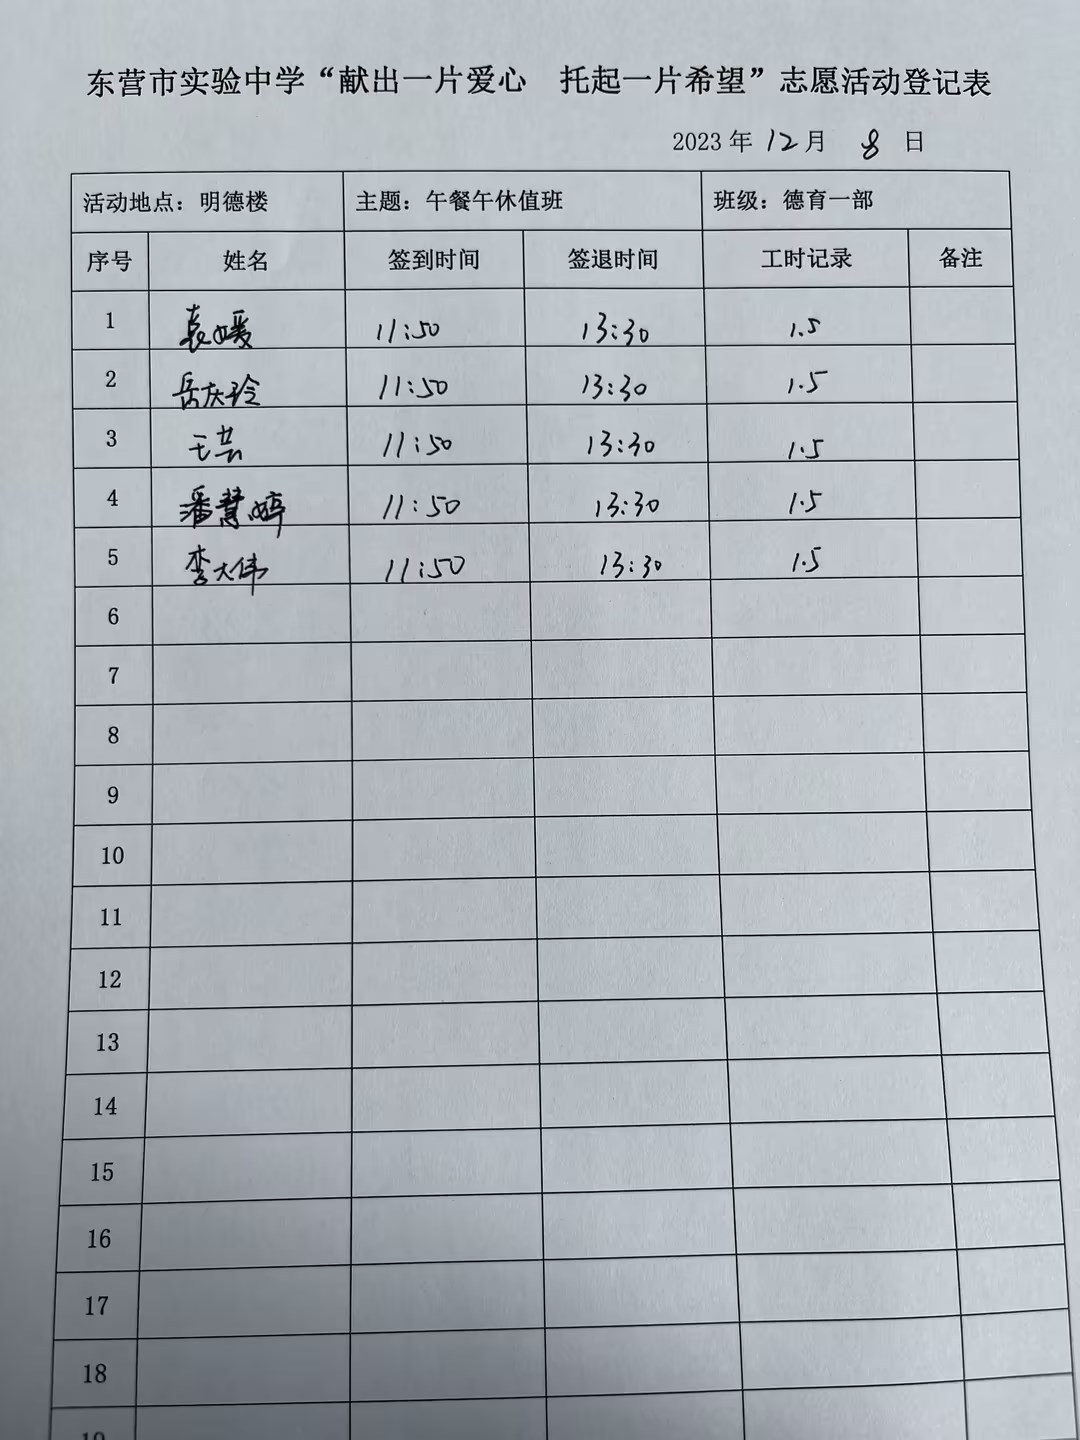 东营市实验中学“献出一片爱心 托起一片希望”志愿活动登记表
2023 年 12 月 8 日
活动地点：明德楼 主题：午餐午休值班 班级：德育一部
序号 姓名 签到时间 签退时间 工时记录 备注
1 袁媛 11:50 13:30 1.5
2 岳庆玲 11:50 13:30 1.5
3 王芸 11:50 13:30 1.5
4 潘慧婷 11:50 13:30 1.5
5 李大伟 11:50 13:30 1.5
6
7
8
9
10
11
12
13
14
15
16
17
18